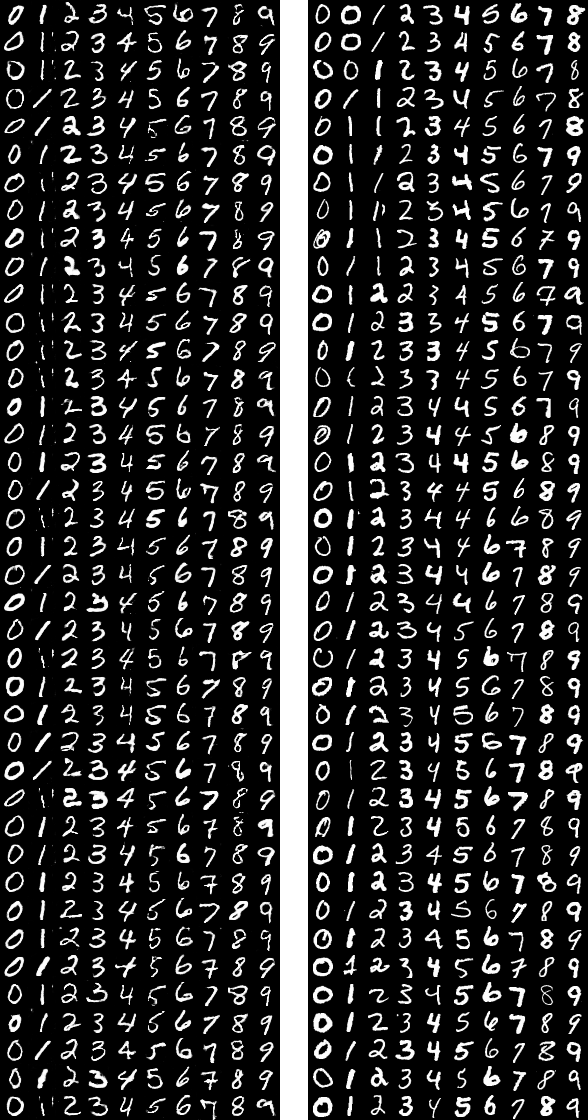 0 1 2 3 4 5 6 7 8 9
0 1 2 3 4 5 6 7 8 9
0 1 2 3 4 5 6 7 8 9
0 1 2 3 4 5 6 7 8 9
0 1 2 3 4 5 6 7 8 9
0 1 2 3 4 5 6 7 8 9
0 1 2 3 4 5 6 7 8 9
0 1 2 3 4 5 6 7 8 9
0 1 2 3 4 5 6 7 8 9
0 1 2 3 4 5 6 7 8 9
0 1 2 3 4 5 6 7 8 9
0 1 2 3 4 5 6 7 8 9
0 1 2 3 4 5 6 7 8 9
0 1 2 3 4 5 6 7 8 9
0 1 2 3 4 5 6 7 8 9
0 1 2 3 4 5 6 7 8 9
0 1 2 3 4 5 6 7 8 9
0 1 2 3 4 5 6 7 8 9
0 1 2 3 4 5 6 7 8 9
0 1 2 3 4 5 6 7 8 9
0 1 2 3 4 5 6 7 8 9
0 1 2 3 4 5 6 7 8 9
0 1 2 3 4 5 6 7 8 9
0 1 2 3 4 5 6 7 8 9
0 1 2 3 4 5 6 7 8 9
0 1 2 3 4 5 6 7 8 9
0 1 2 3 4 5 6 7 8 9
0 1 2 3 4 5 6 7 8 9
0 1 2 3 4 5 6 7 8 9
0 1 2 3 4 5 6 7 8 9
0 1 2 3 4 5 6 7 8 9
0 1 2 3 4 5 6 7 8 9
0 1 2 3 4 5 6 7 8 9
0 1 2 3 4 5 6 7 8 9
0 1 2 3 4 5 6 7 8 9
0 1 2 3 4 5 6 7 8 9
0 1 2 3 4 5 6 7 8 9
0 1 2 3 4 5 6 7 8 9
0 1 2 3 4 5 6 7 8 9
0 1 2 3 4 5 6 7 8 9
0 0 1 2 3 4 5 6 7 8
0 0 1 2 3 4 5 6 7 8
0 0 1 2 3 4 5 6 7 8
0 1 1 2 3 4 5 6 7 8
0 1 1 2 3 4 5 6 7 8
0 1 1 2 3 4 5 6 7 9
0 1 1 2 3 4 5 6 7 9
0 1 1 2 3 4 5 6 7 9
0 1 1 2 3 4 5 6 7 9
0 1 1 2 3 4 5 6 7 9
0 1 2 2 3 4 5 6 7 9
0 1 2 3 3 4 5 6 7
0 1 2 3 3 4 5 6 7 9
0 1 2 3 3 4 5 6 7 9
0 1 2 3 4 4 5 6 7 9
0 1 2 3 4 4 5 6 8 9
0 1 2 3 4 4 5 6 8 9
0 1 2 3 4 4 5 6 8 9
0 1 2 3 4 4 6 6 8 9
0 1 2 3 4 4 6 7 8 9
0 1 2 3 4 4 6 7 8 9
0 1 2 3 4 4 6 7 8 9
0 1 2 3 4 5 6 7 8 9
0 1 2 3 4 5 6 7 8 9
0 1 2 3 4 5 6 7 8 9
0 1 2 3 4 5 6 7 8 9
0 1 2 3 4 5 6 7 8 9
0 1 2 3 4 5 6 7 8 9
0 1 2 3 4 5 6 7 8 9
0 1 2 3 4 5 6 7 8 9
0 1 2 3 4 5 6 7 8 9
0 1 2 3 4 5 6 7 8 9
0 1 2 3 4 5 6 7 8 9
0 1 2 3 4 5 6 7 8 9
0 1 2 3 4 5 6 7 8 9
0 1 2 3 4 5 6 7 8 9
0 1 2 3 4 5 6 7 8 9
0 1 2 3 4 5 6 7 8 9
0 1 2 3 4 5 6 7 8 9
0 1 2 3 4 5 6 7 8 9